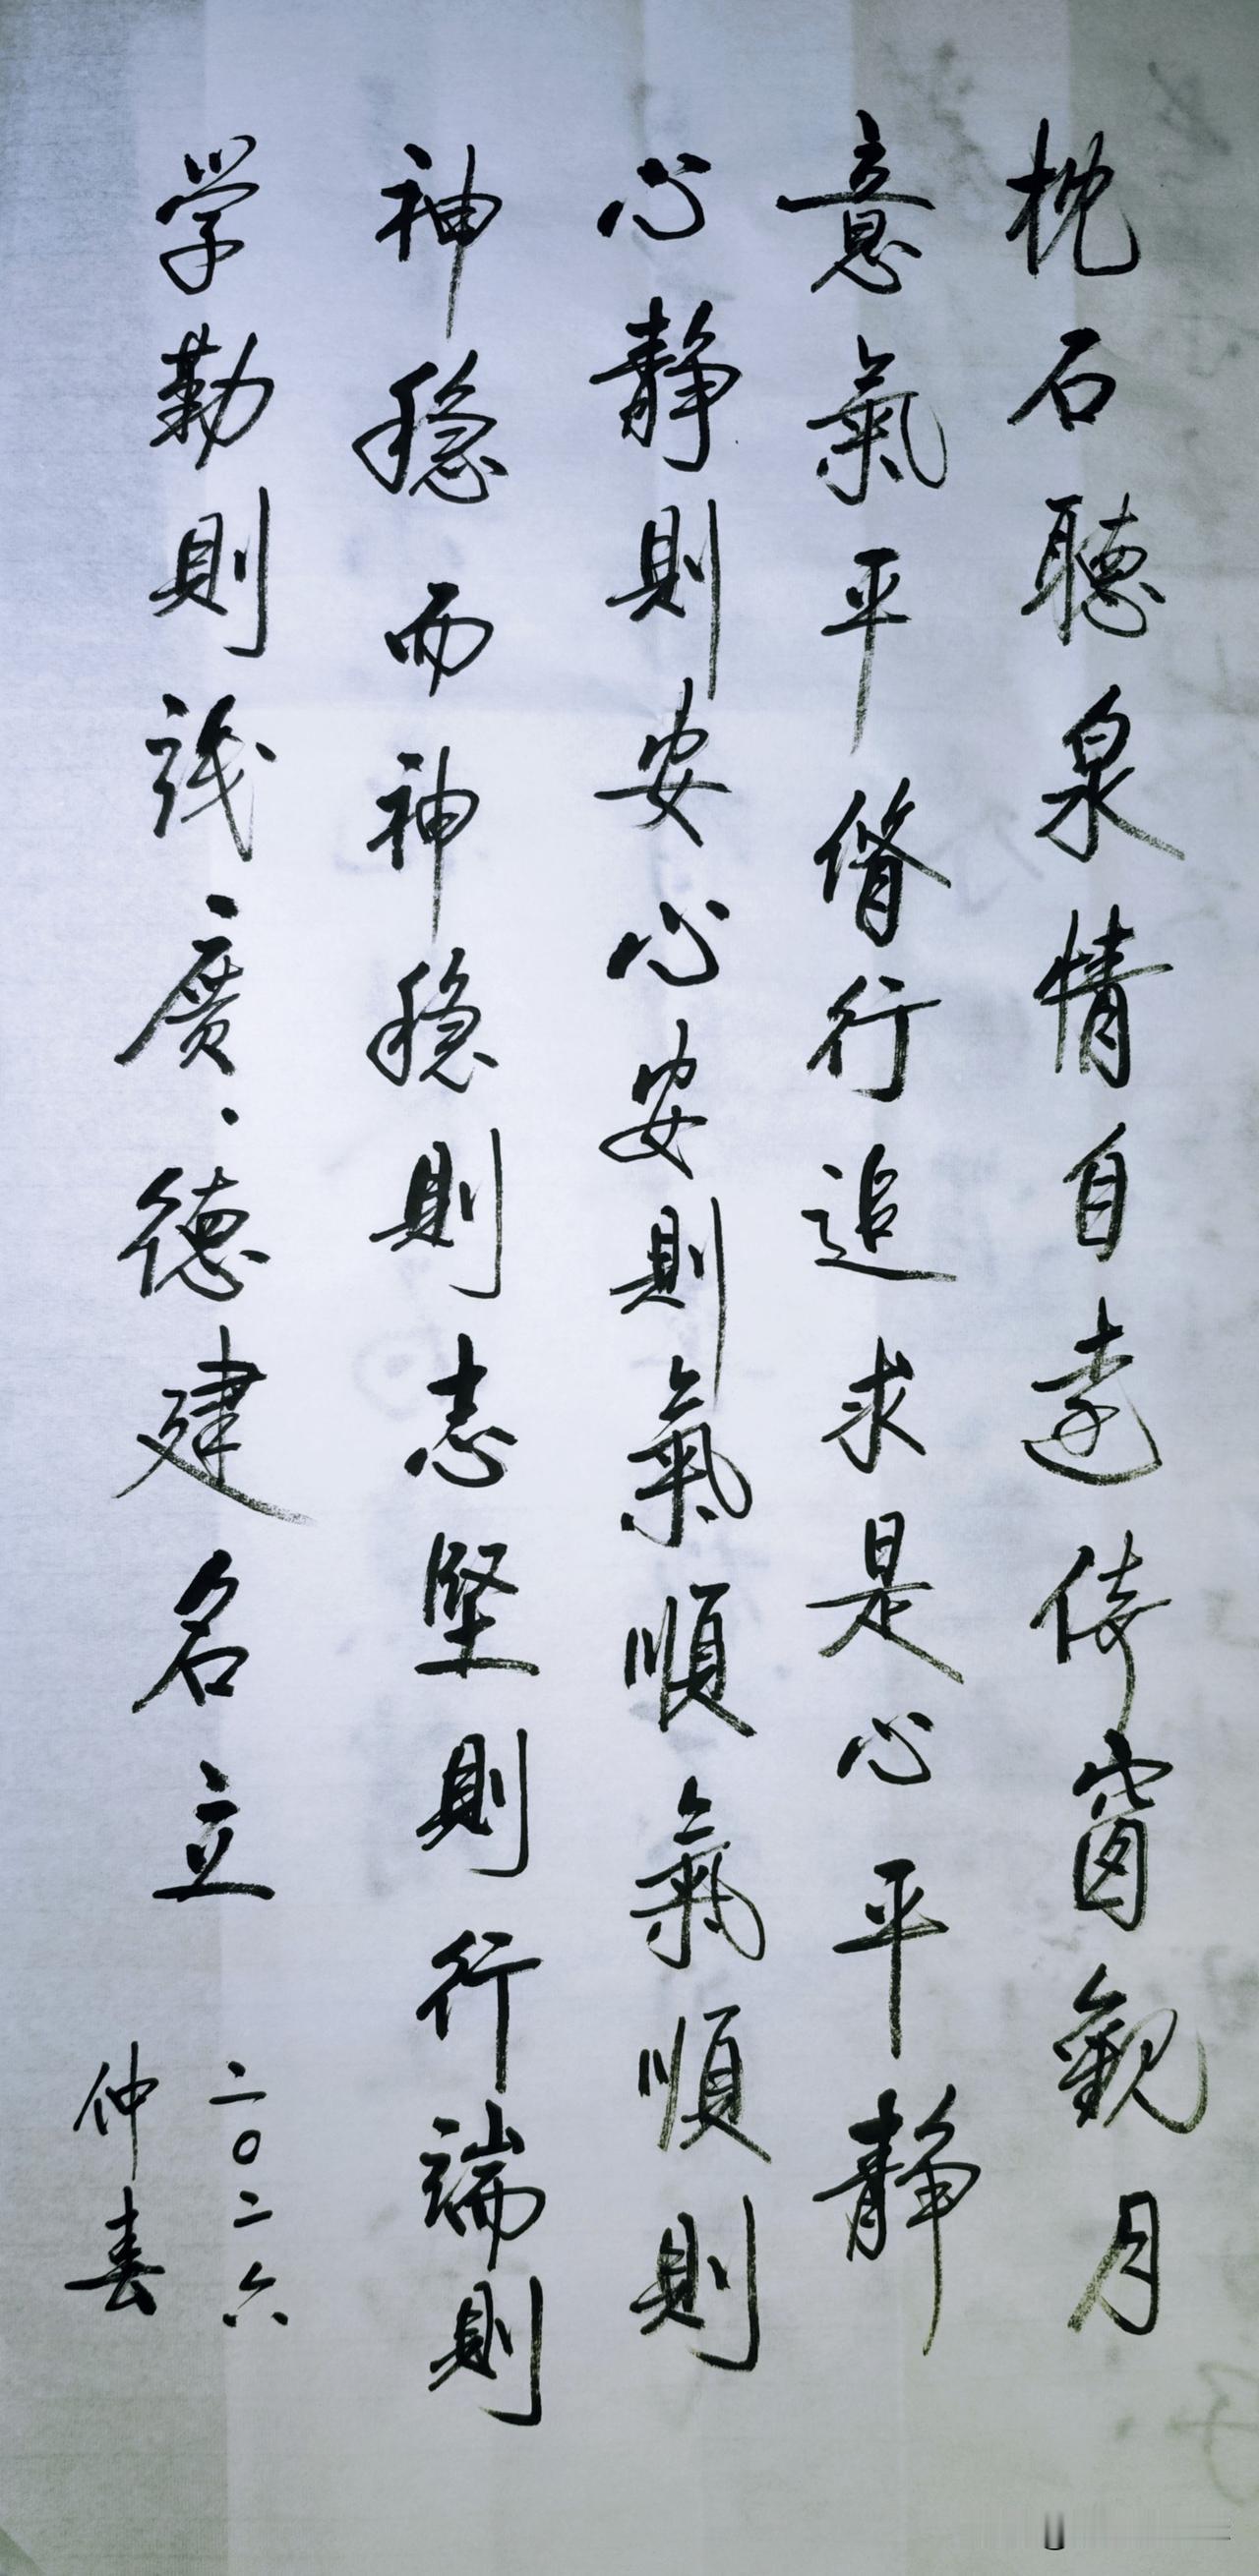 枕石聽泉情自遠倚窗觀月
意氣平脩行追求是心平靜
心靜則安心安則氣順氣順則
神稳而神稳則志堅則行端則
学勤則識廣·德建名立
二〇二六
仲春